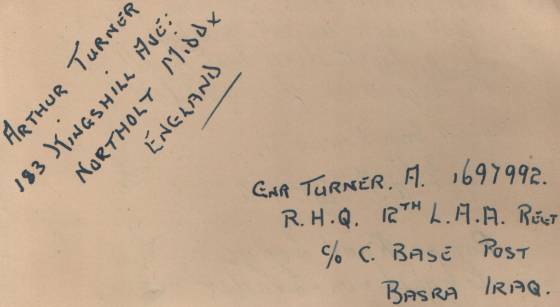 ARTHUR TURNER
183 KINGSHILL AVE:
NORTHOLT MIDDX
ENGLAND
GNR TURNER. A. 1697992.
R.H.Q. 12TH L.A.A. REGT
C/O C. BASE POST
BASRA IRAQ.